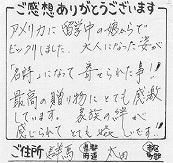 ご感想ありがとうございます
アメリカに留学中の娘からで
ビックリしました。大人になった姿が
「名詩」になって寄せられた事!!
最高の贈り物にとても感激
しています。家族の絆が
感じられてとも嬉しいです!!
ご住所 群馬 都道府県 太田 市区町村